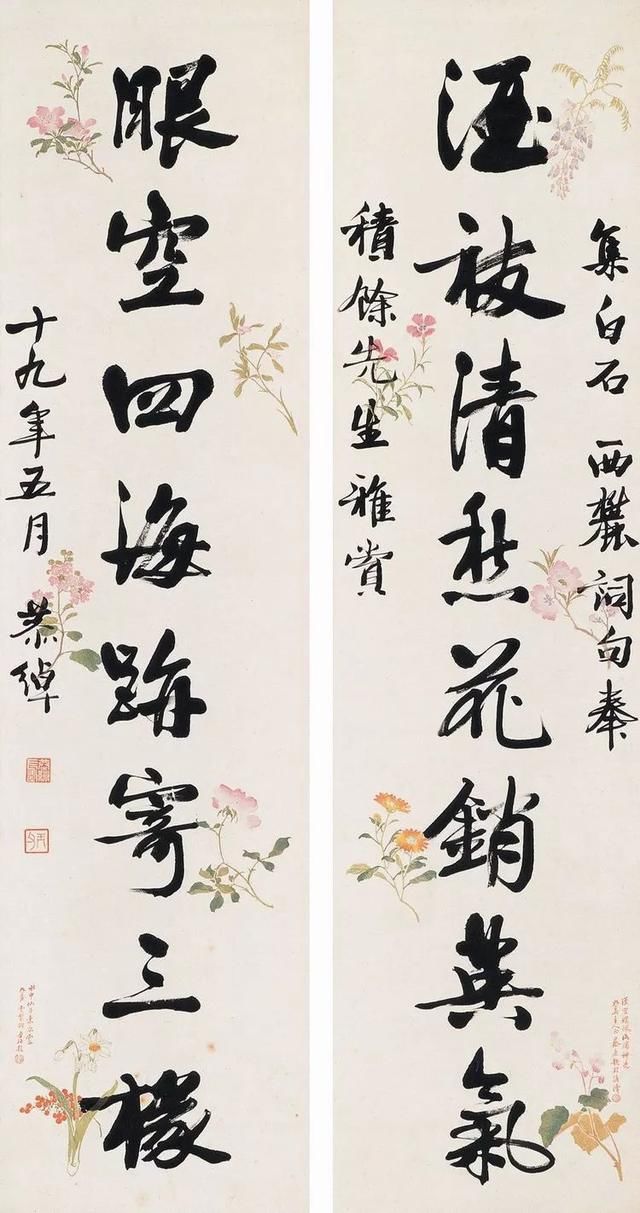 集白石 西麓詞句奉
酒祓清愁花銷英氣
積餘先生雅賞
眼空四海跡寄三椽
十九年五月 恭綽